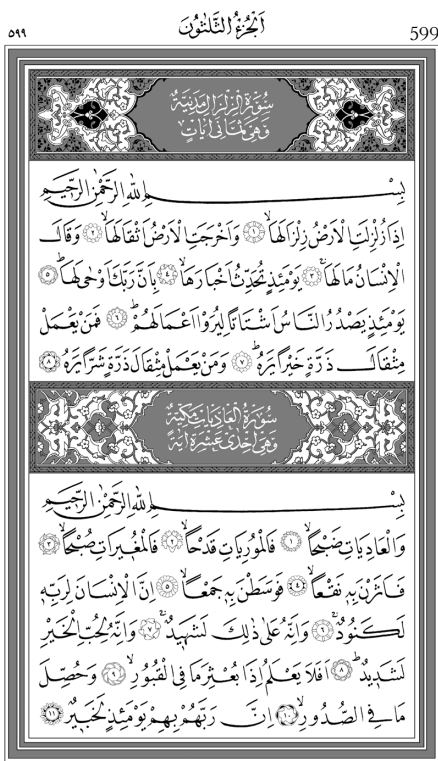 ٥٩٩ اَلْجُزْءُ الثَّلٰثُونَ 599
سُورَةُ الزِّلْزَالِ مَدَنِيَّةٌ
وَهِيَ ثَمَانِي اٰيَاتٍ
بِسْمِ اللّٰهِ الرَّحْمٰنِ الرَّحِيمِ
اِذَا زُلْزِلَتِ الْاَرْضُ زِلْزَالَهَاۙ ﴿١﴾ وَاَخْرَجَتِ الْاَرْضُ اَثْقَالَهَاۙ ﴿٢﴾ وَقَالَ
الْاِنْسَانُ مَالَهَاۚ ﴿٣﴾ يَوْمَئِذٍ تُحَدِّثُ اَخْبَارَهَاۙ ﴿٤﴾ بِاَنَّ رَبَّكَ اَوْحٰى لَهَاۜ ﴿٥﴾
يَوْمَئِذٍ يَصْدُرُ النَّاسُ اَشْتَاتًا لِيُرَوْا اَعْمَالَهُمْۜ ﴿٦﴾ فَمَنْ يَعْمَلْ
مِثْقَالَ ذَرَّةٍ خَيْرًا يَرَهُۜ ﴿٧﴾ وَمَنْ يَعْمَلْ مِثْقَالَ ذَرَّةٍ شَرًّا يَرَهُ ﴿٨﴾
سُورَةُ الْعَادِيَاتِ مَكِّيَّةٌ
وَهِيَ اِحْدٰى عَشْرَةَ اٰيَةً
بِسْمِ اللّٰهِ الرَّحْمٰنِ الرَّحِيمِ
وَالْعَادِيَاتِ ضَبْحًاۙ ﴿١﴾ فَالْمُورِيَاتِ قَدْحًاۙ ﴿٢﴾ فَالْمُغِيرَاتِ صُبْحًاۙ ﴿٣﴾
فَاَثَرْنَ بِهِ نَقْعًاۙ ﴿٤﴾ فَوَسَطْنَ بِهِ جَمْعًاۙ ﴿٥﴾ اِنَّ الْاِنْسَانَ لِرَبِّهِ
لَكَنُودٌۚ ﴿٦﴾ وَاِنَّهُ عَلٰى ذٰلِكَ لَشَهِيدٌۚ ﴿٧﴾ وَاِنَّهُ لِحُبِّ الْخَيْرِ
لَشَدِيدٌۜ ﴿٨﴾ اَفَلَا يَعْلَمُ اِذَا بُعْثِرَ مَا فِي الْقُبُورِۙ ﴿٩﴾ وَحُصِّلَ
مَا فِي الصُّدُورِۙ ﴿١٠﴾ اِنَّ رَبَّهُمْ بِهِمْ يَوْمَئِذٍ لَخَبِيرٌ ﴿١١﴾